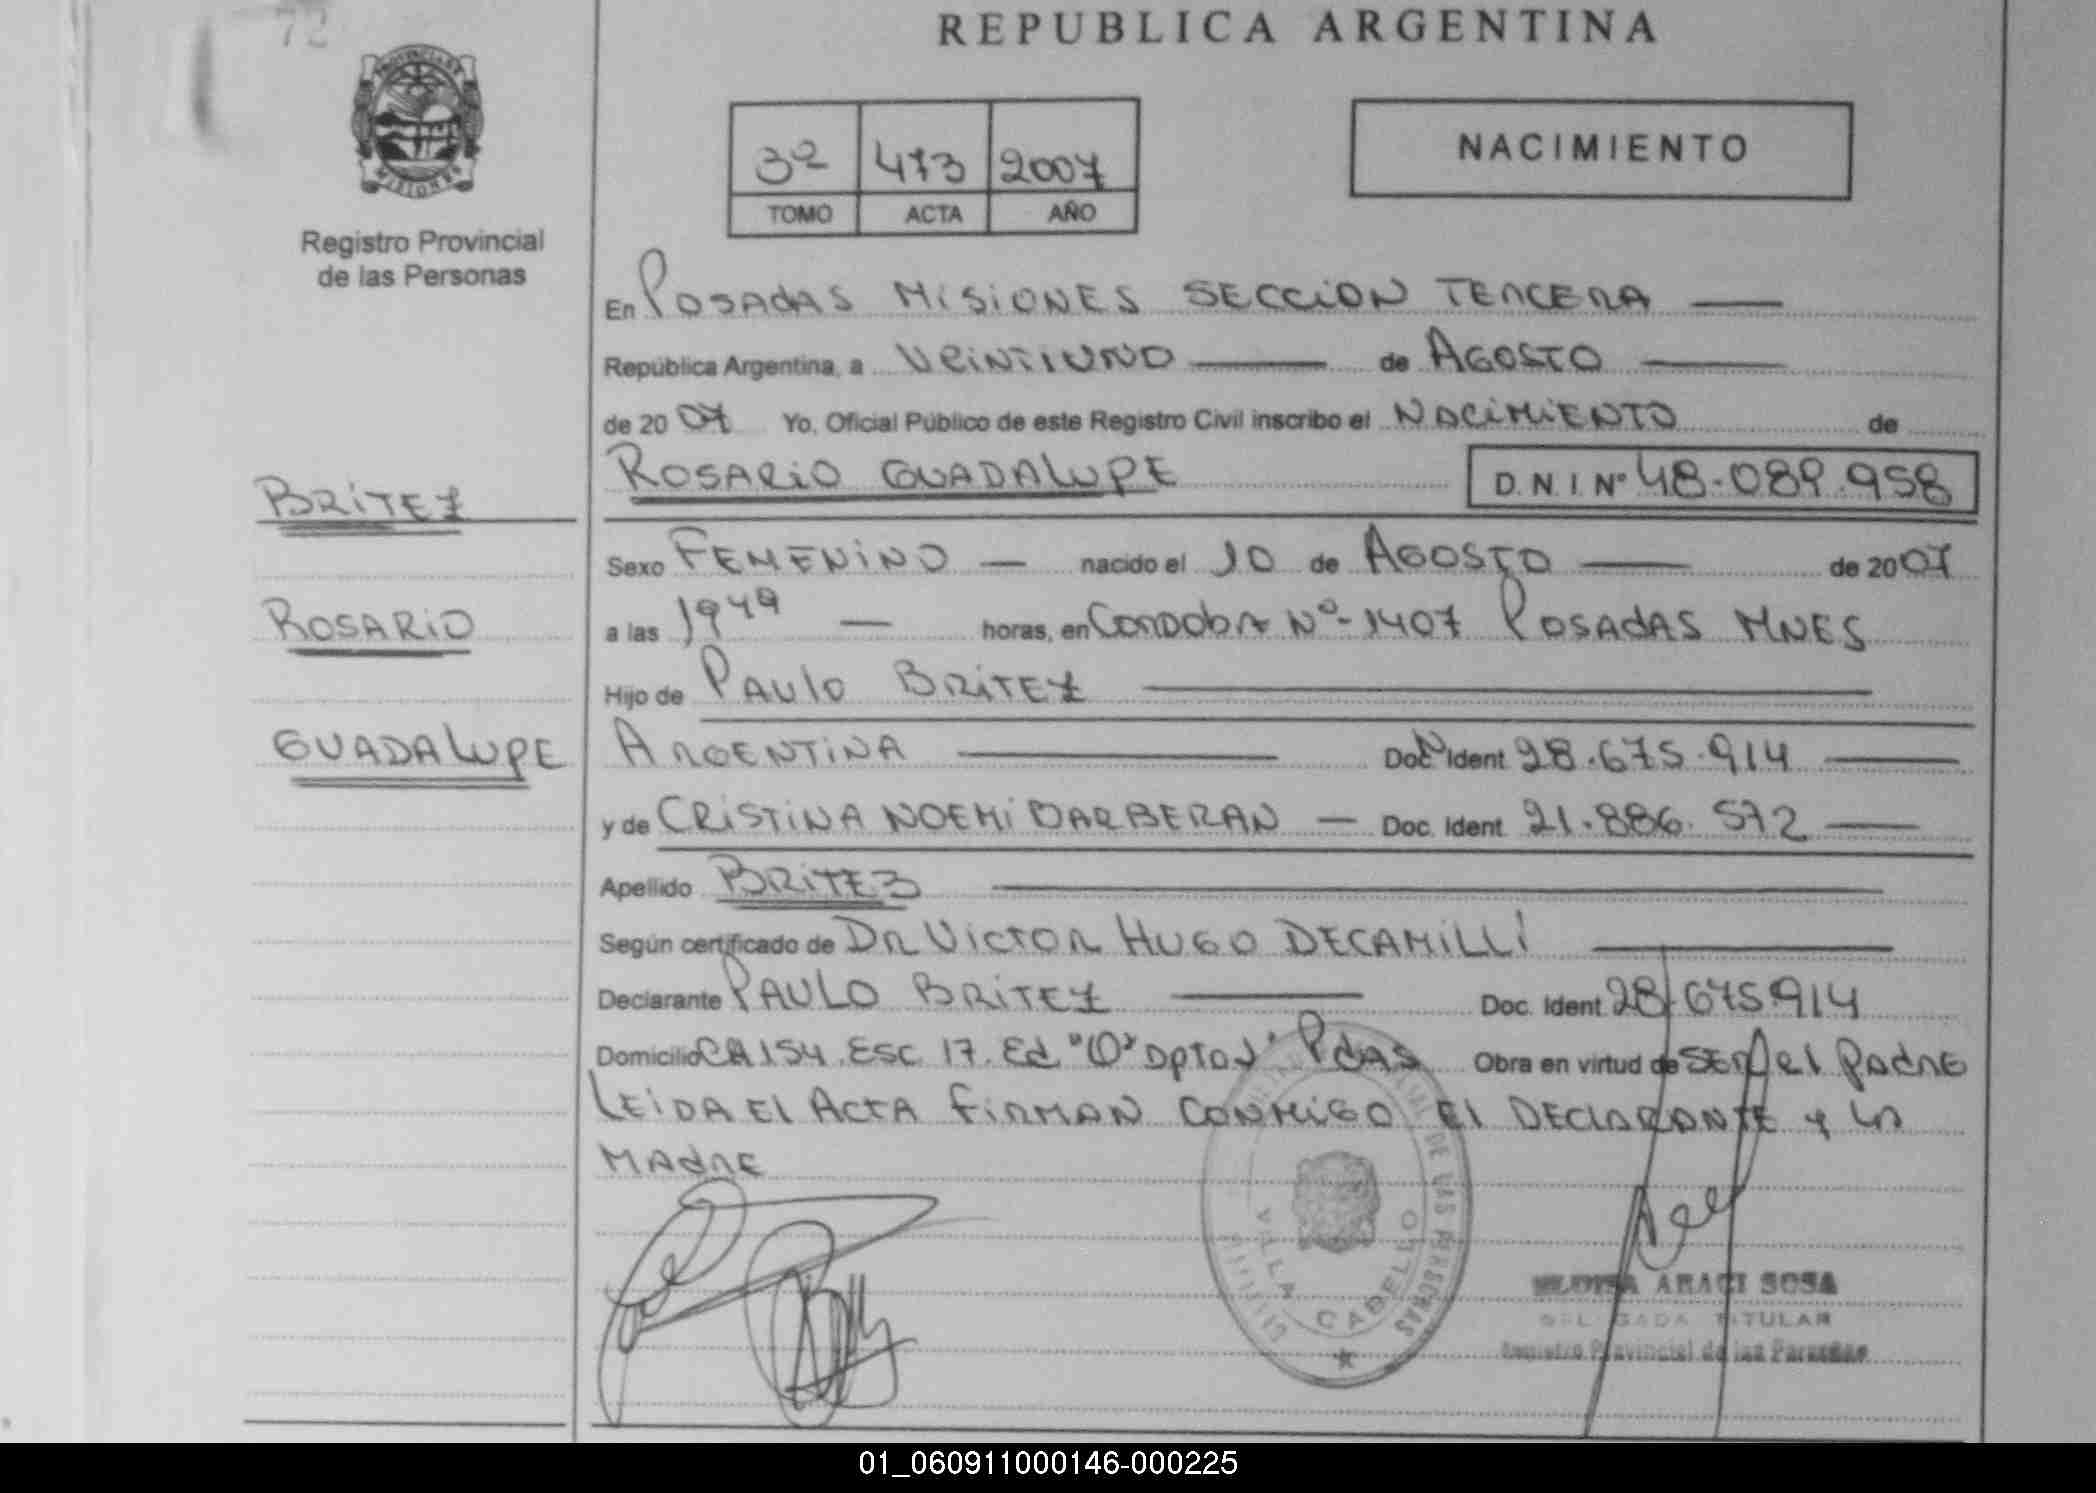 72
REPUBLICA ARGENTINA
PROVINCIA DE MISIONES
Registro Provincial
de las Personas
3º 473 2007
TOMO ACTA AÑO
NACIMIENTO
En POSADAS MISIONES SECCION TERCERA
República Argentina, a VEINTIUNO de AGOSTO
de 2007 Yo, Oficial Público de este Registro Civil inscribo el NACIMIENTO de
ROSARIO GUADALUPE D.N.I. Nº 48.089.958
BRITEZ
ROSARIO
GUADALUPE
Sexo FEMENINO nacido el 10 de AGOSTO de 2007
a las 19 49 horas, en CORDOBA Nº 1407 POSADAS MNES
Hijo de PAULO BRITEZ
ARGENTINA Doc. Ident 28.675.914
y de CRISTINA NOEMI BARBERAN Doc. Ident. 21.886.572
Apellido BRITEZ
Según certificado de DR VICTOR HUGO DECAMILLI
Declarante PAULO BRITEZ Doc. Ident. 28.675.914
Domicilio CH 154. Esc 17. Ed "O" Dpto Pdas Obra en virtud de SER el PADRE
LEIDA El ACTA FIRMAN CONMIGO El DECLARANTE y LA
MADRE
DE LAS PERSONAS
VILLA CABELLO
ELOISA ARACI SOSA
DELEGADA TITULAR
Registro Provincial de las Personas
01_060911000146-000225